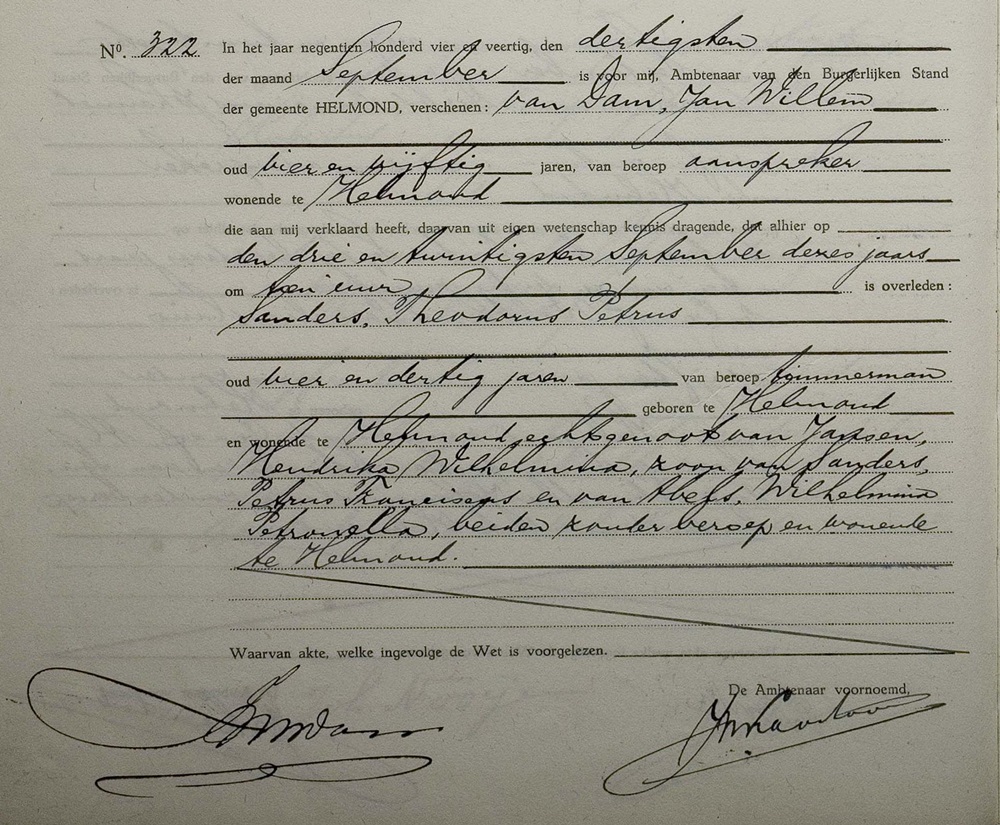 Nº. 322. In het jaar negentien honderd vier en veertig, den dertigsten
der maand September is voor mij, Ambtenaar van den Burgerlijken Stand
der gemeente HELMOND, verschenen: van Dam, Jan Willem
oud vier en vijftig jaren, van beroep aanspreker
wonende te Helmond
die aan mij verklaard heeft, daarvan uit eigen wetenschap kennis dragende, dat alhier op
den drie en twintigsten September dezes jaars
om tien uur is overleden:
Sanders, Theodorus Petrus
oud vier en dertig jaren van beroep timmerman
geboren te Helmond
en wonende te Helmond, echtgenoot van Jansen,
Hendrika Wilhelmina, zoon van Sanders,
Petrus Franciscus en van Abels, Wilhelmina
Petronella, beiden zonder beroep en wonende
te Helmond.
Waarvan akte, welke ingevolge de Wet is voorgelezen.
De Ambtenaar voornoemd,